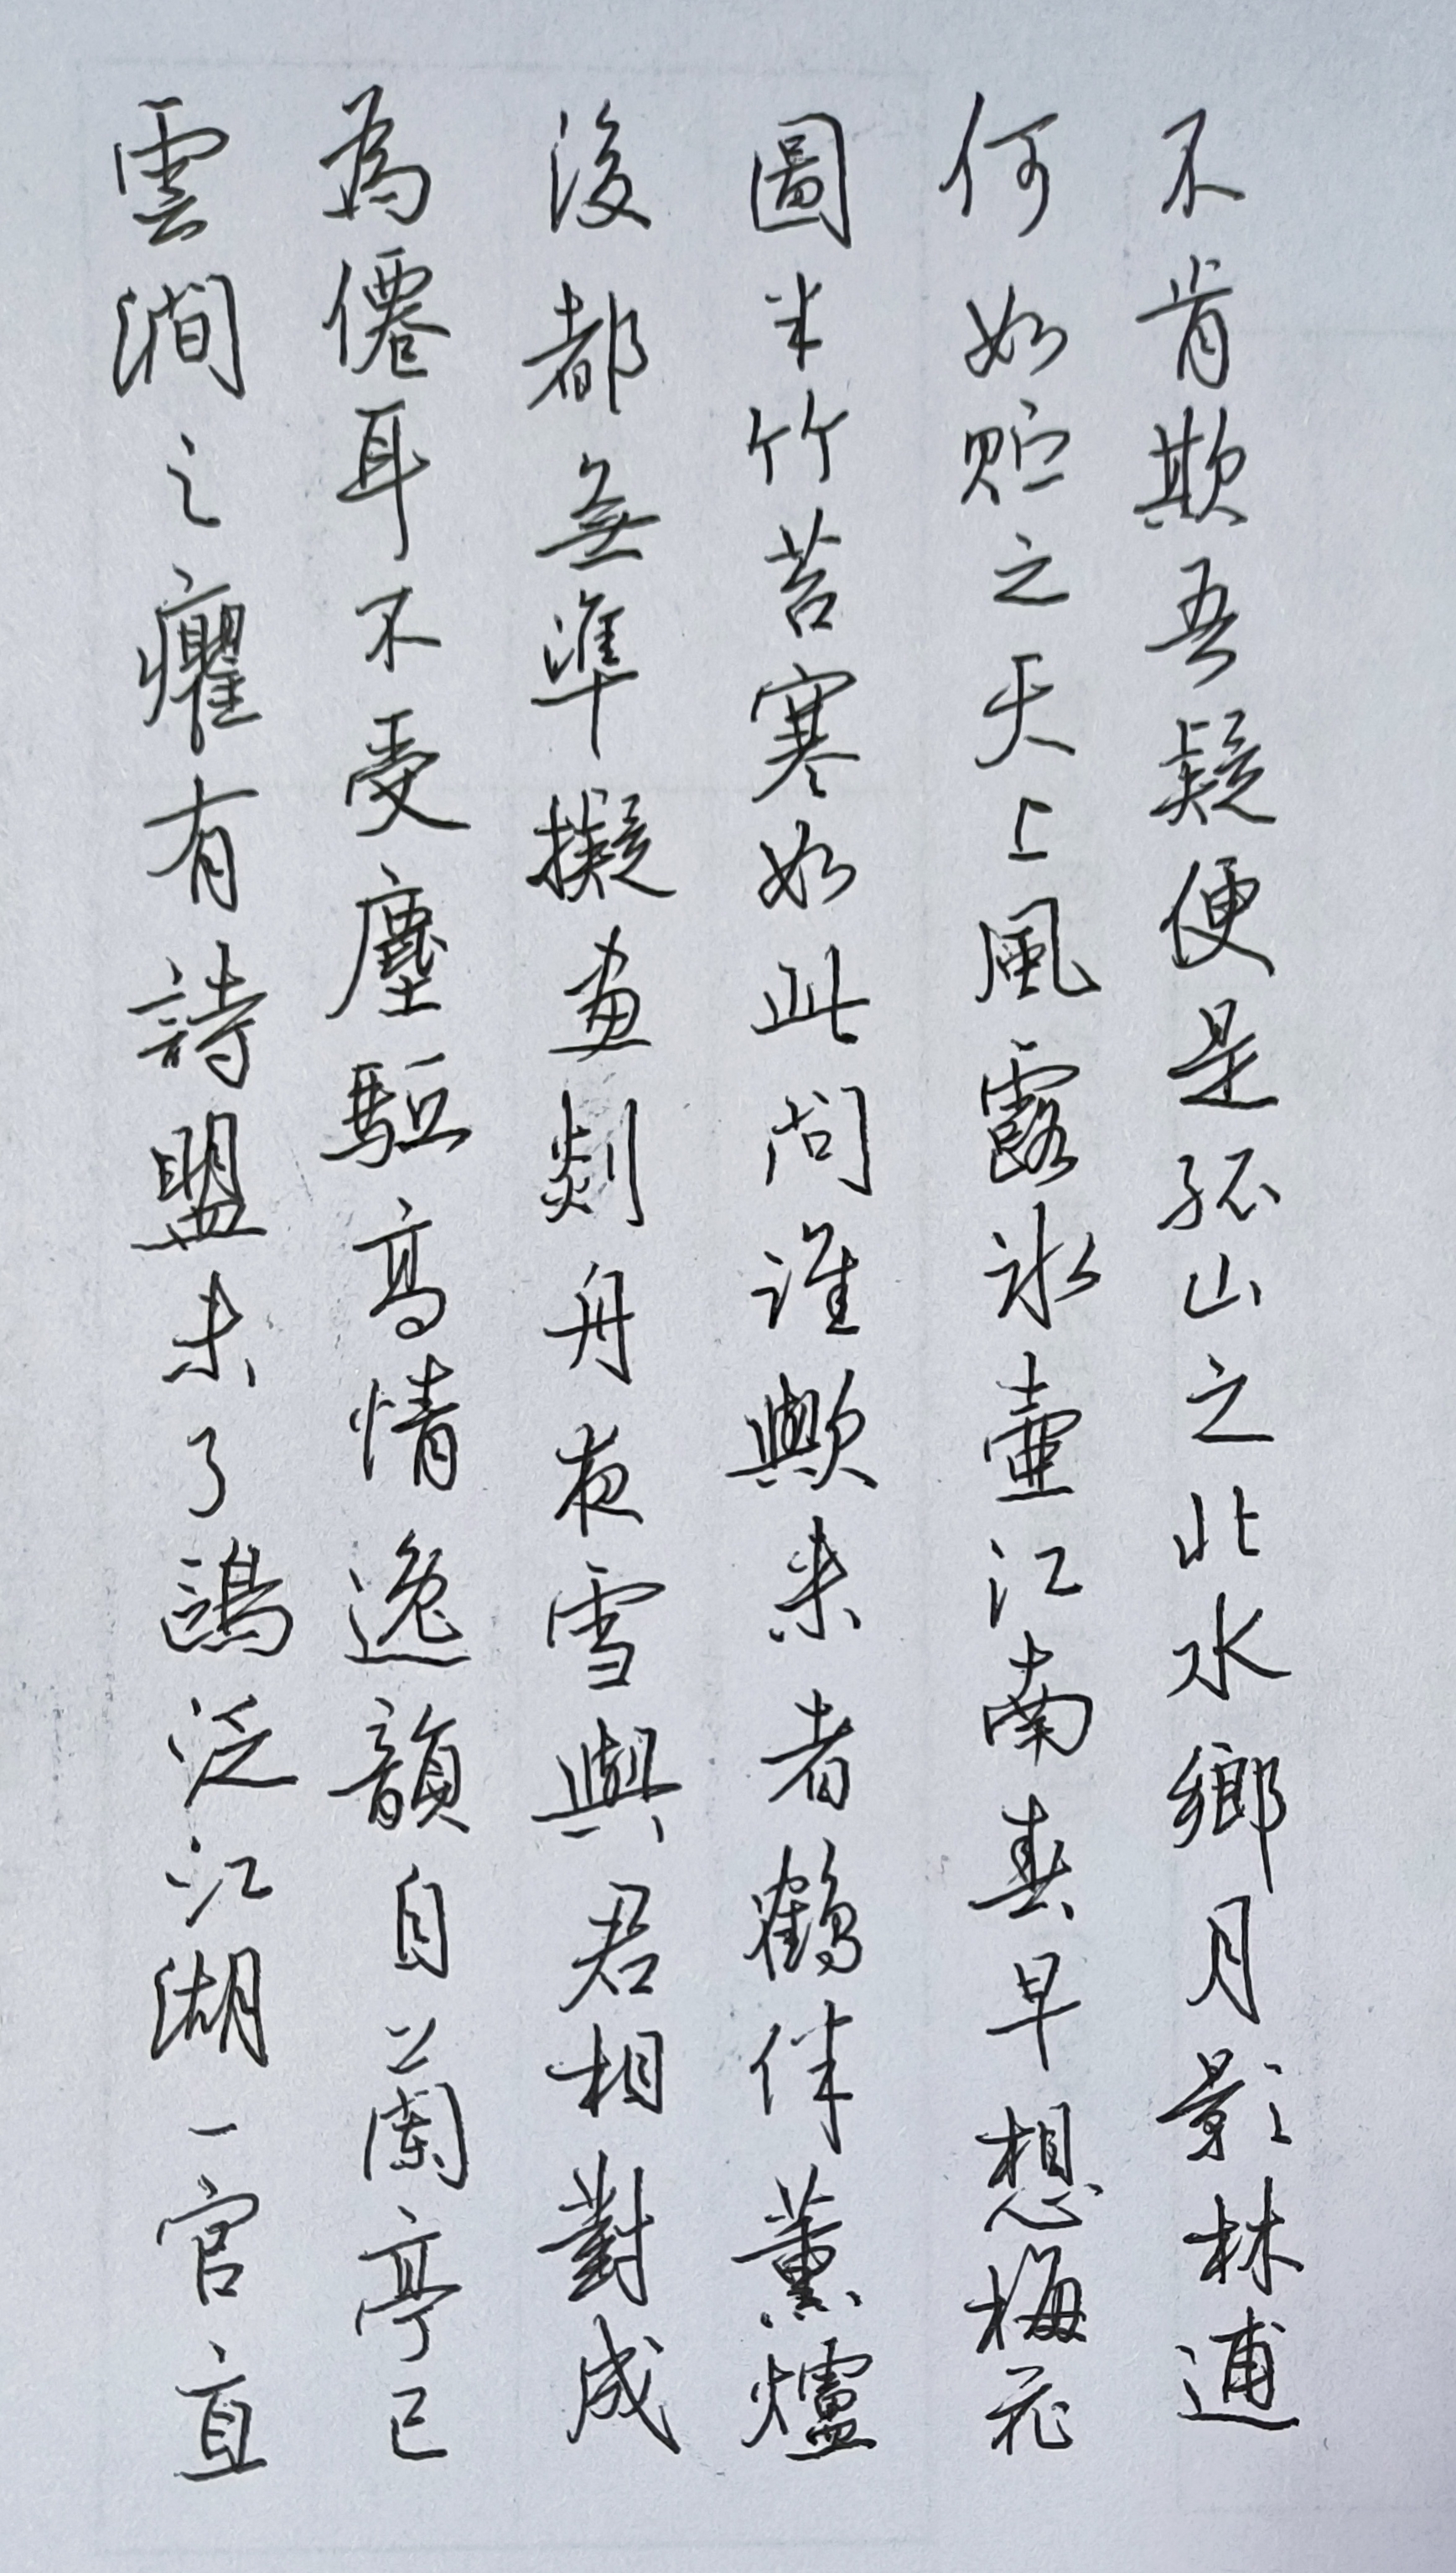 不肯欺吾疑便是孤山之北水鄉月影林逋
何如貯之天上風露冰壺江南春早想梅花
圖半竹苔寒如此問誰歟來者鶴伴薰爐
後都無準擬畫剡舟夜雪與君相對成
為僊耳不受塵驅高情逸韻自蘭亭已
雲澗之癯有詩盟未了鷗泛江湖一官直